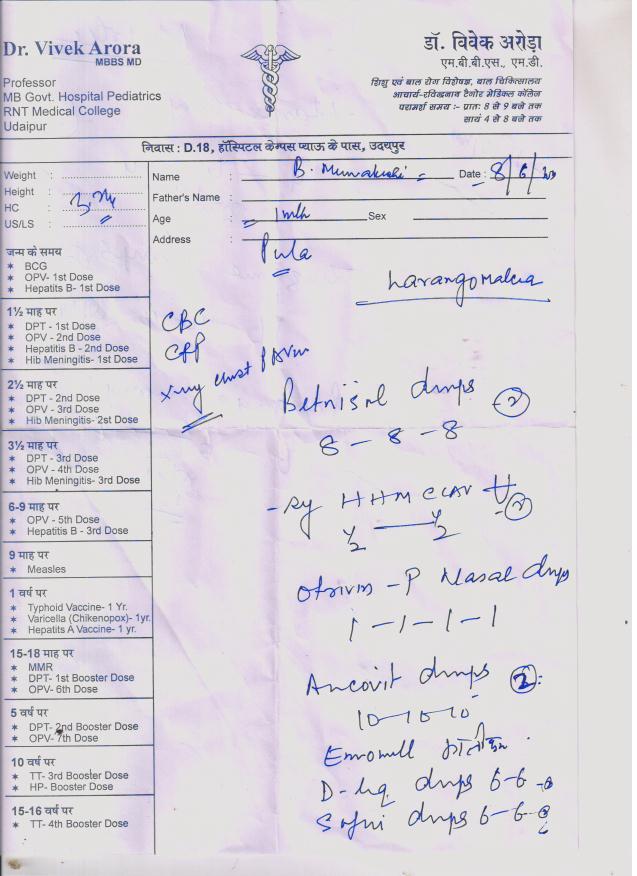 Dr. Vivek Arora
MBBS MD
Professor
MB Govt. Hospital Pediatrics
RNT Medical College
Udaipur
डॉ. विवेक अरोड़ा
एम.बी.बी.एस., एम.डी.
शिशु एवं बाल रोग विशेषज्ञ, बाल चिकित्सालय
आचार्य-रविन्द्रनाथ टैगोर मेडिकल कॉलेज
परामर्श समय :- प्रातः 8 से 9 बजे तक
सायं 4 से 8 बजे तक
निवास : D.18, हॉस्पिटल केम्पस प्याऊ के पास, उदयपुर
Weight :
Height :
HC :
US/LS :
Name : B.
Date : 8/6/20
Father's Name :
Age : 1 mth Sex
Address : Pula
जन्म के समय
* BCG
* OPV- 1st Dose
* Hepatits B- 1st Dose
1½ माह पर
* DPT - 1st Dose
* OPV - 2nd Dose
* Hepatitis B - 2nd Dose
* Hib Meningitis- 1st Dose
2½ माह पर
* DPT - 2nd Dose
* OPV - 3rd Dose
* Hib Meningitis- 2st Dose
3½ माह पर
* DPT - 3rd Dose
* OPV - 4th Dose
* Hib Meningitis- 3rd Dose
6-9 माह पर
* OPV - 5th Dose
* Hepatitis B - 3rd Dose
9 माह पर
* Measles
1 वर्ष पर
* Typhoid Vaccine- 1 Yr.
* Varicella (Chikenopox)- 1yr.
* Hepatits A Vaccine- 1 yr.
15-18 माह पर
* MMR
* DPT- 1st Booster Dose
* OPV- 6th Dose
5 वर्ष पर
* DPT- 2nd Booster Dose
* OPV- 7th Dose
10 वर्ष पर
* TT- 3rd Booster Dose
* HP- Booster Dose
15-16 वर्ष पर
* TT- 4th Booster Dose
Larangomalcia
CBC
CRP
Xray chest
Betnisol drops
8 - 8 - 8
Sy HHM CLAV
½ — ½
Otrivin - P Nasal drops
1 - 1 - 1 - 1
Ancovit drops 2
10-10-10
drops 6-6-6
drops 6-6-6